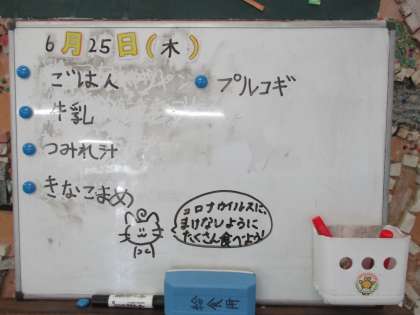 6月25日(木)
ごはん
牛乳
つみれ汁
きなこまめ
プルコギ
コロナウイルスに
まけないように
たくさん食べよう!
給食用